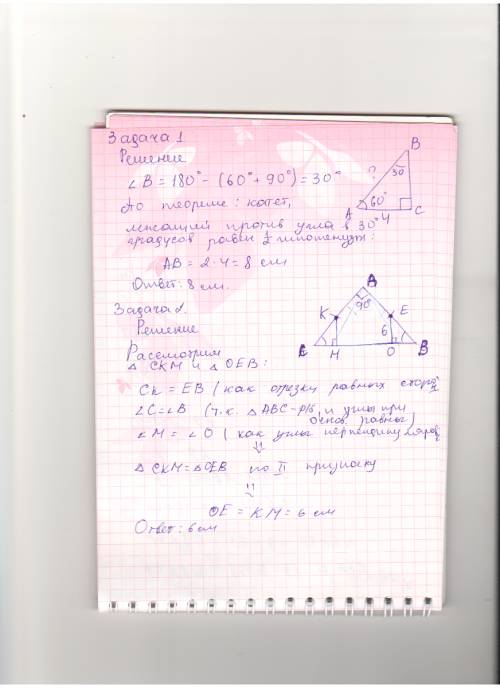 Задача 1
Решение
∠B = 180° - (60° + 90°) = 30°
По теореме: катет,
лежащий против угла в 30°
градусов равен ½ гипотенузы:
AB = 2·4 = 8 см
Ответ: 8 см.
B
30
?
60°
A
4
C
Задача 2.
Решение
Рассмотрим
△ CKM и △ OEB:
A
90°
K
E
6
C
M
O
B
CK = EB (как отрезки равных сторон
∠C = ∠B (т.к. △ABC - р/б, и углы при
основ. равны)
∠M = ∠O (как углы перпендикуляров
⇓
△ CKM = △OEB по II признаку
⇓
OE = KM = 6 см
Ответ: 6 см